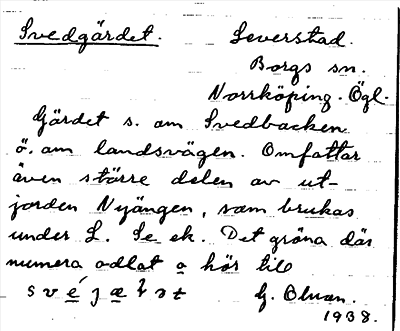 Svedgärdet. Leverstad.
Borgs sn.
Norrköping. Ögl.
Gärdet s. om Svedbacken
ö. om landsvägen. Omfattar
även större delen av ut-
jorden Nyängen, som brukas
under L. Se ek. Det gröna där
numera odlat o hör till
G. Olman.
1938.